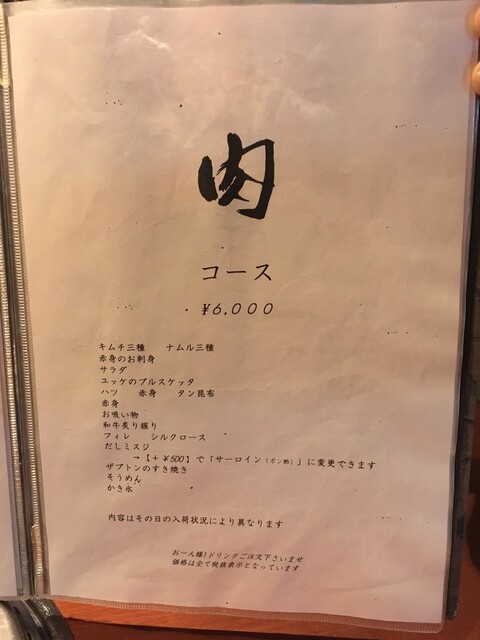 肉
コース
¥6,000
キムチ三種　ナムル三種
赤身のお刺身
サラダ
ユッケのブルスケッタ
ハツ　赤身　タン昆布
赤身
お吸い物
和牛炙り握り
フィレ　シルクロース
だしミスジ
→【+¥500】で「サーロイン(ポン酢)」に変更できます
ザブトンのすき焼き
そうめん
かき氷
内容はその日の入荷状況により異なります
お一人様1ドリンクご注文下さいませ
価格は全て税抜表示となっています